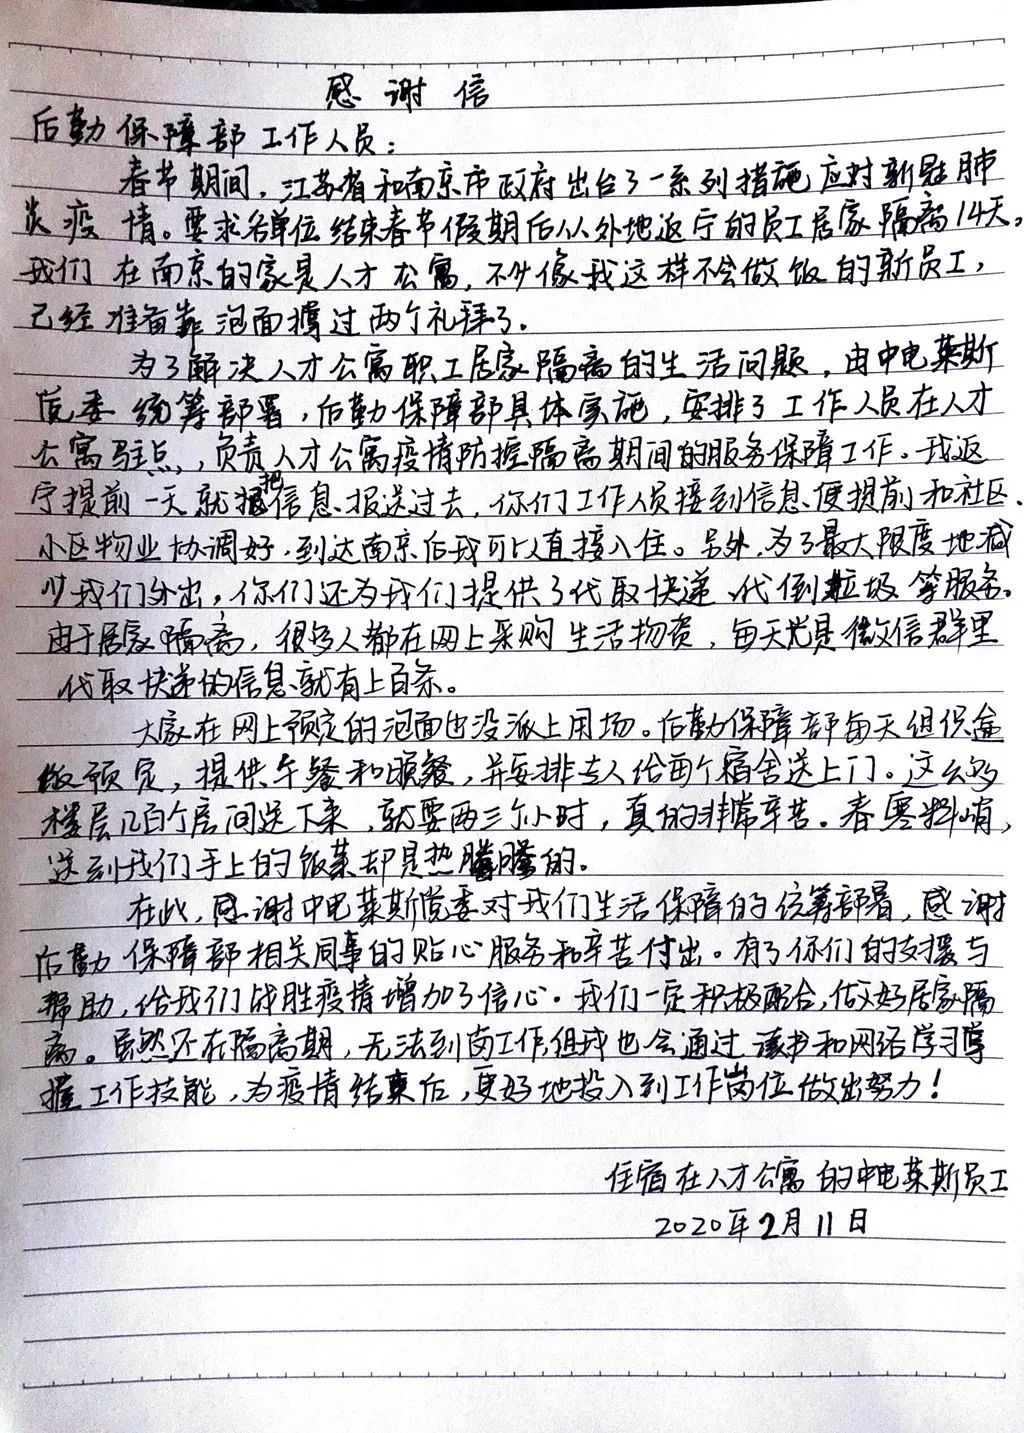 感谢信
后勤保障部工作人员：
春节期间，江苏省和南京市政府出台了一系列措施应对新冠肺
炎疫情。要求各单位结束春节假期后从外地返宁的员工居家隔离14天。
我们在南京的家是人才公寓，不少像我这样不会做饭的新员工，
已经准备靠泡面撑过两个礼拜了。
为了解决人才公寓职工居家隔离的生活问题，由中电莱斯
党委统筹部署，后勤保障部具体实施，安排了工作人员在人才
公寓驻点，负责人才公寓疫情防控隔离期间的服务保障工作。我返
宁提前一天就把信息报送过去，你们工作人员接到信息便提前和社区、
小区物业协调好，到达南京后我可以直接入住。另外，为了最大限度地减
少我们外出，你们还为我们提供了代取快递、代倒垃圾等服务。
由于居家隔离，很多人都在网上采购生活物资，每天光是微信群里
代取快递的信息就有上百条。
大家在网上预定的泡面也没派上用场。后勤保障部每天组织盒
饭预定，提供午餐和晚餐，并安排专人给每个宿舍送上门。这么多
楼层几百个房间送下来，就要两三个小时，真的非常辛苦。春寒料峭，
送到我们手上的饭菜却是热腾腾的。
在此，感谢中电莱斯党委对我们生活保障的统筹部署，感谢
后勤保障部相关同事的贴心服务和辛苦付出。有了你们的支援与
帮助，给我们战胜疫情增加了信心。我们一定积极配合，做好居家隔
离。虽然还在隔离期，无法到岗工作，但我也会通过读书和网络学习掌
握工作技能，为疫情结束后，更好地投入到工作岗位做出努力！
住宿在人才公寓的中电莱斯员工
2020年2月11日